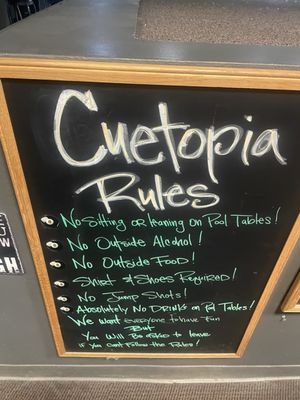 Cuetopia
Rules
No Sitting or leaning on Pool Tables!
No Outside Alcohol!
No Outside Food!
Shirt & Shoes Required!
No Jump Shots!
Absolutely No DRINKS on Pool Tables!
We want everyone to have Fun
But
You Will Be asked to leave
if You Can't Follow the Rules!